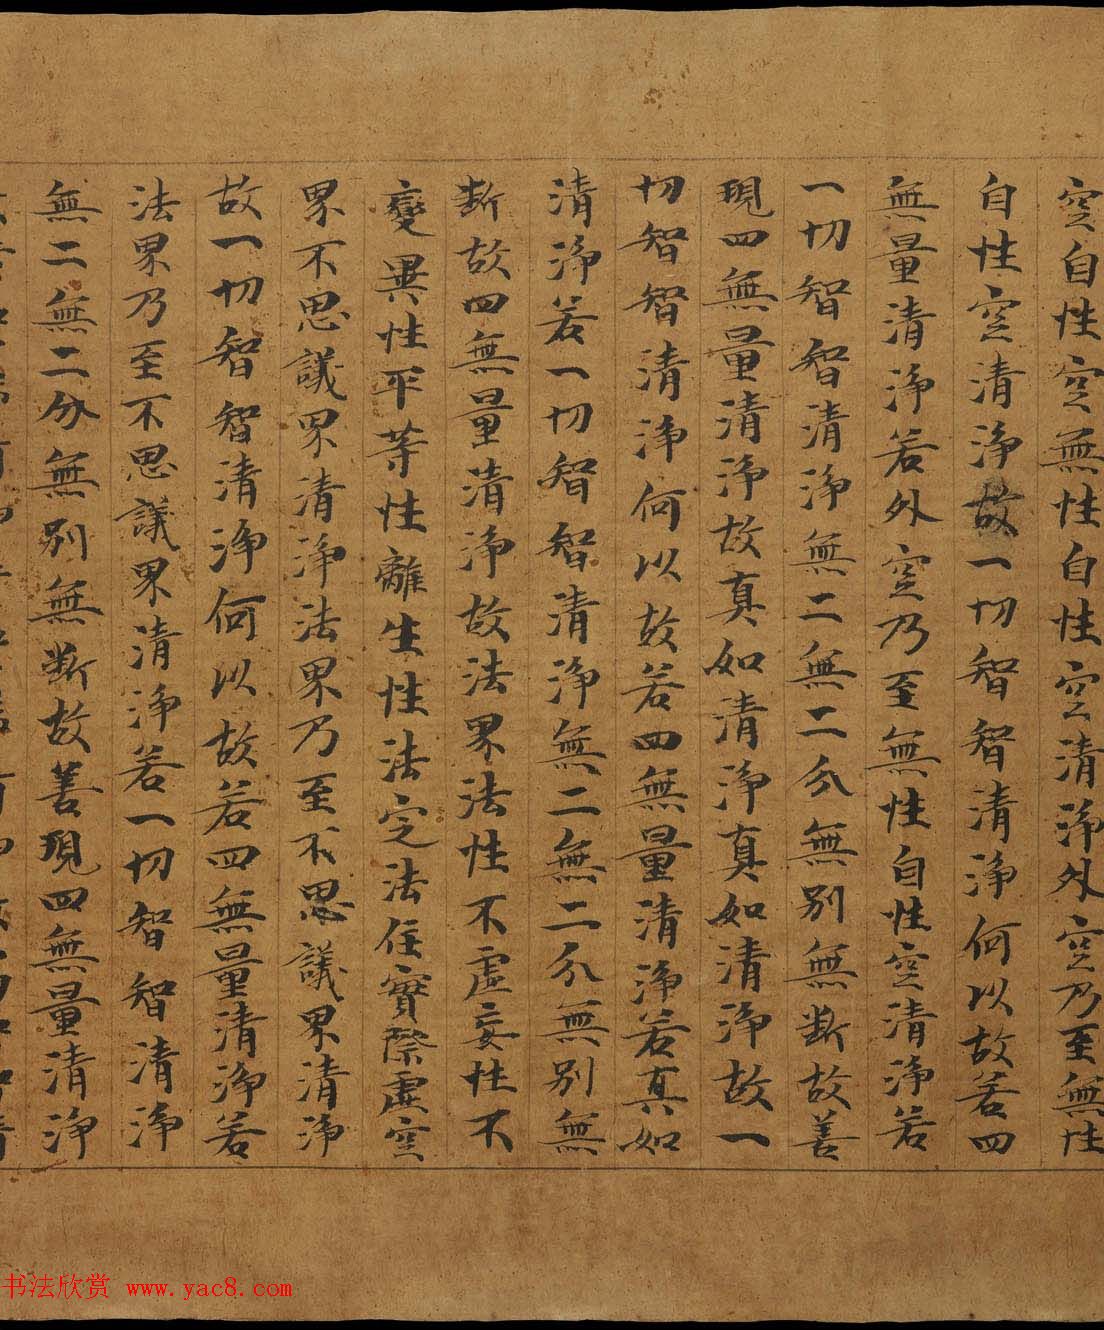 空自性空無性自性空清淨外空乃至無性
自性空清淨故一切智智清淨何以故若四
無量清淨若外空乃至無性自性空清淨若
一切智智清淨無二無二分無別無斷故善
現四無量清淨故真如清淨真如清淨故一
切智智清淨何以故若四無量清淨若真如
清淨若一切智智清淨無二無二分無別無
斷故四無量清淨故法界法性不虛妄性不
變異性平等性離生性法定法住實際虛空
界不思議界清淨法界乃至不思議界清淨
故一切智智清淨何以故若四無量清淨若
法界乃至不思議界清淨若一切智智清淨
無二無二分無別無斷故善現四無量清淨
书法欣赏 www.yac8.com